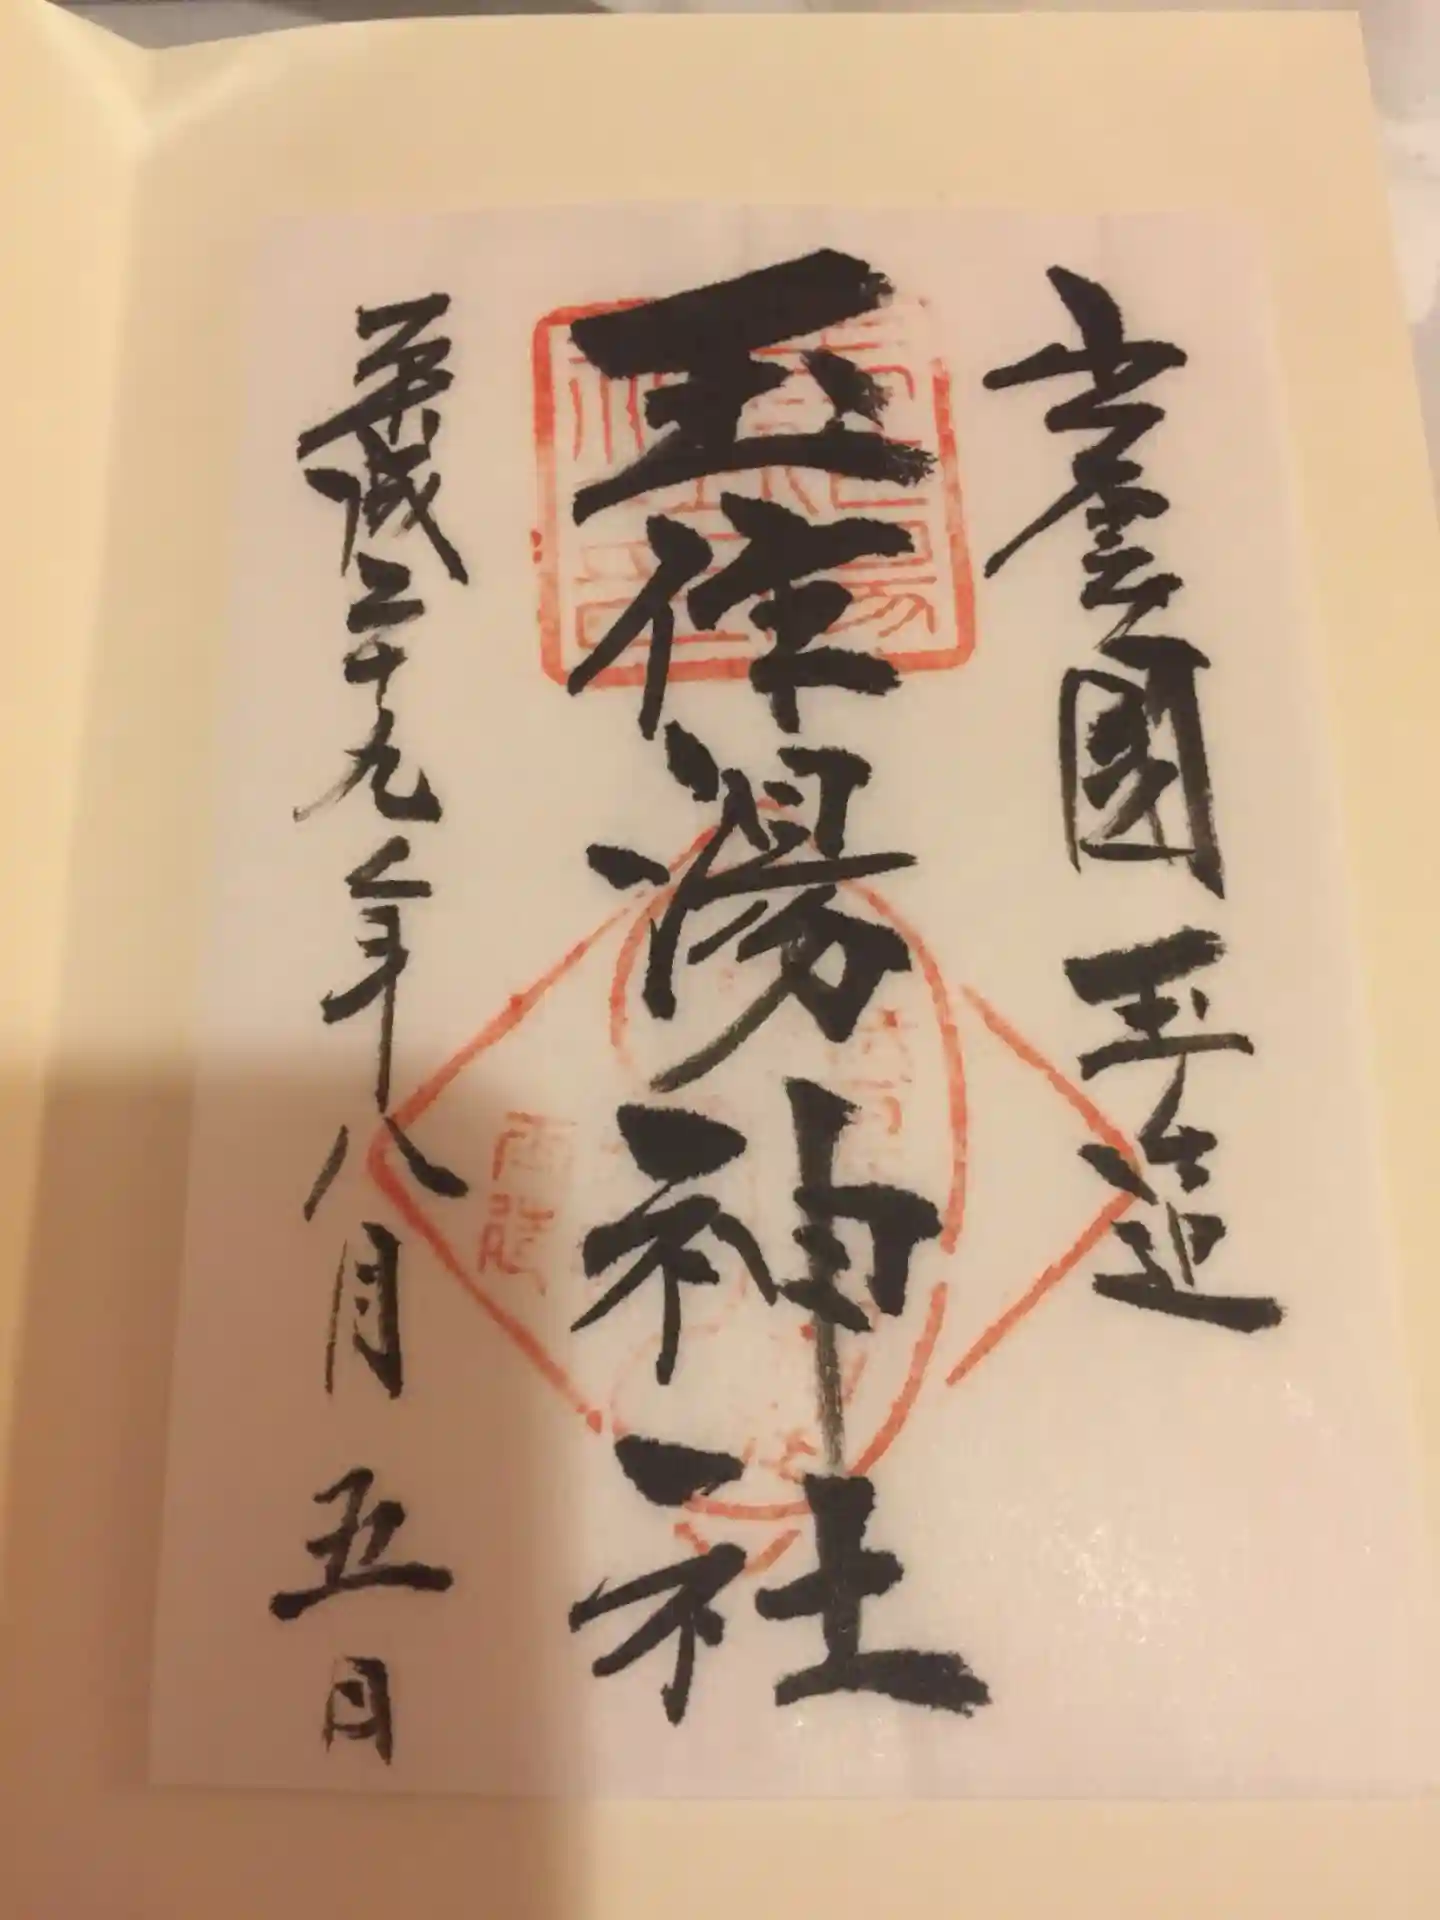 出雲國 玉造
玉作湯神社
平成二十九年八月五日